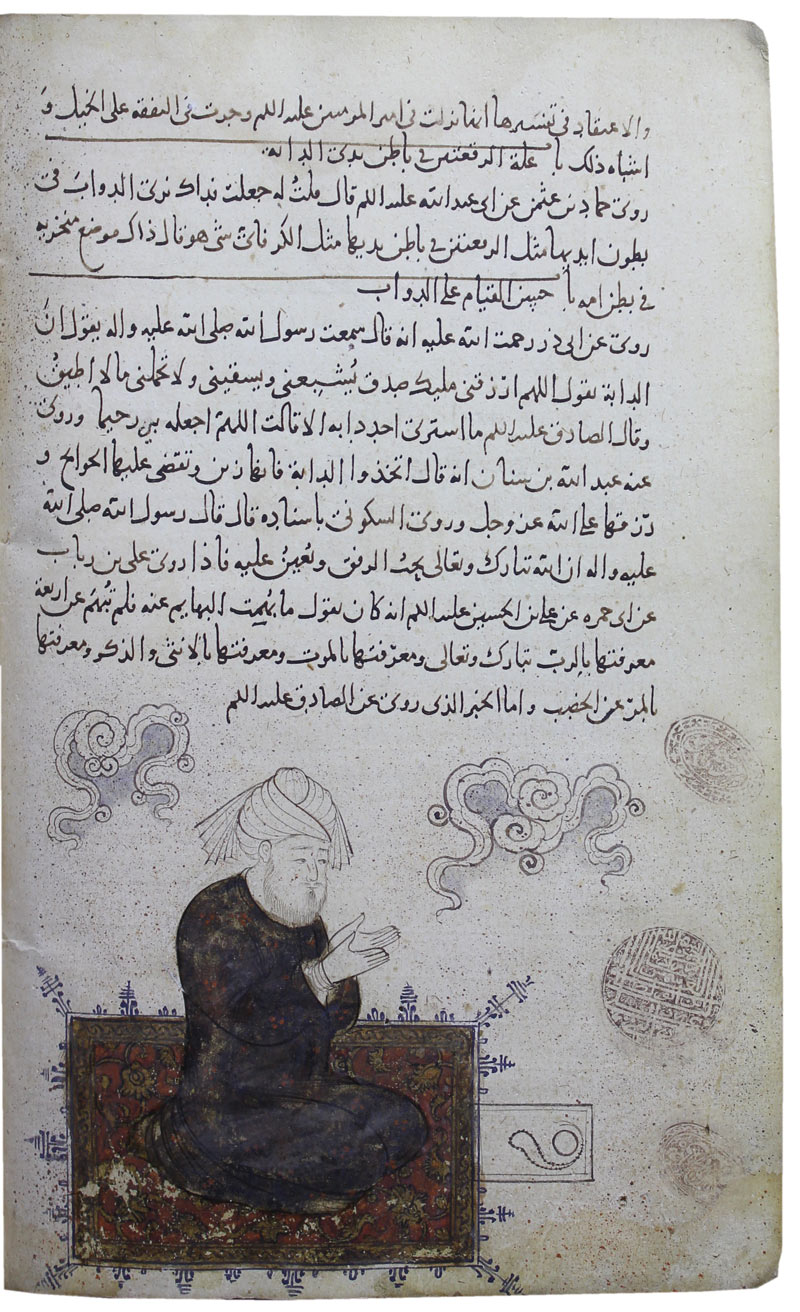 والاعتقاد في تفسيرها انها نزلت في امير المومنين عليه السلم وجرت في النفقه على الخيل و
اشباه ذلك باب علة الرقعتين في باطن يدى الدابة
روى حماد بن عثمن عن ابى عبد الله عليه السلم قال قلت له جعلت فداك نرى الدواب فى
بطون ايديها مثل الرقعتين في باطن يديها مثل الكي فاى شى هو قال ذاك موضع منخريه
في بطن امه باب حسن القيام على الدواب
روى عن ابى ذر رحمت الله عليه انه قال سمعت رسول الله صلى الله عليه واله يقول ان
الدابة تقول اللهم ارزقنى مليك صدق يُشبعنى ويسقينى ولا تحملنى مالا اطيق
وقال الصادق عليه السلم ما اشترى احد دابه الا قالت اللهم اجعله بى رحيما وروى
عنه عبد الله بن سنان انه قال اتخذوا الدابة فانها زين وتقضى عليها الحوايج و
رزقها على الله عز وجل وروى السكونى باسناده قال قال رسول الله صلى الله
عليه واله ان الله تبارك وتعالى يحب الرفق ويُعين عليه فاذا روى على بن رياب
عن ابى حمزه عن على بن الحسين عليه السلم انه كان يقول ما بُهمت البهايم عنه فلم تُبهم عن اربعة
معرفتها بالربّ تبارك وتعالى ومعرفتها بالموت ومعرفتها بالانثى والذكر ومعرفتها
بالمرعى الخصب واما الخبر الذى روى عن الصادق عليه السلم